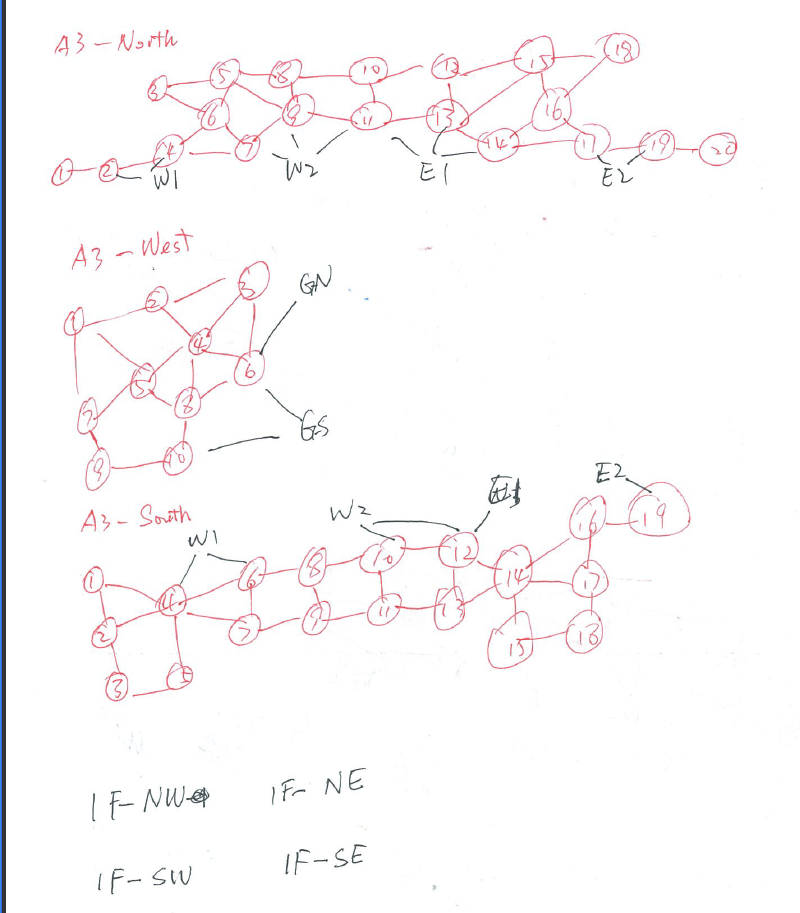 A3-North
3 5 8 10 12 15 18
6 9 11 13 16
1 2 4 7 14 17 19 20
W1 W2 E1 E2
A3-West
1 2 3 GN
4
5 6
7 8 GS
9 10
A3-South
W1 W2 E2
1 4 6 8 10 12 14 16 19
2 7 9 11 13 17
3 5 15 18
1F-NW 1F-NE
1F-SW 1F-SE